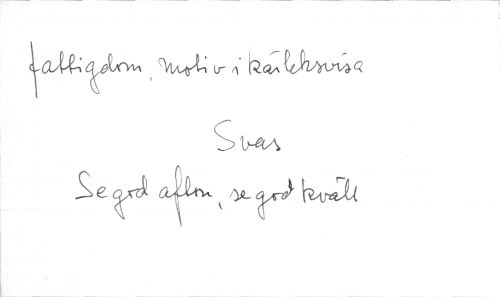 fattigdom, motiv i kärleksvisa
Svas
Se god afton, se god kväll